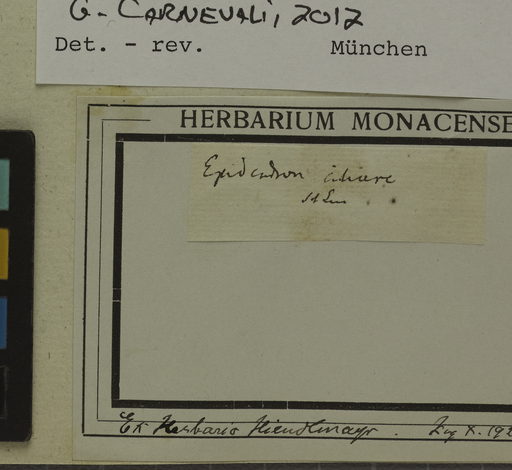 G. CARNEVALI, 2012
Det. - rev. München
HERBARIUM MONACENSE
Epidendron ciliare
Ex Herbario Hiendlmayr.